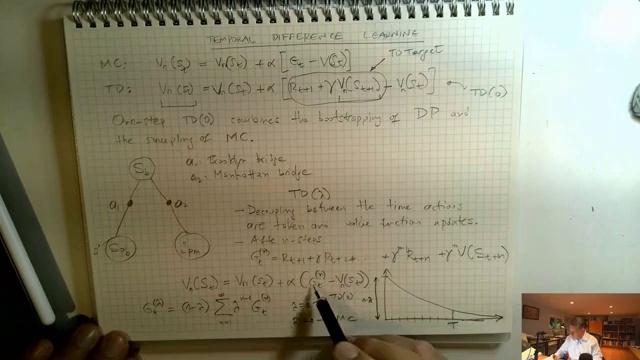 TEMPORAL DIFFERENCE LEARNING
MC: Vπ(St) = Vπ(St) + α [Gt − V(St)]
TD Target
TD: Vπ(St) = Vπ(St) + α [Rt+1 + γ Vπ(St+1) − Vπ(St)] TD(0)
One-step TD(0) combines the bootstrapping of DP and
the sampling of MC.
Sb
a1: Brooklyn bridge
a2: Manhattan bridge
a1
a2
Spb
Spm
TD(λ)
- Decoupling between the time actions
are taken and value function updates.
- After n-steps
Gt(n) = Rt+1 + γ Rt+2 + γn-1 Rt+n + γn V(St+n)
Vπ(St) = Vπ(St) + α (Gt(n) − Vπ(St))
Gt(λ) = (1-λ) Σ n=1 ∞ λn-1 Gt(n)
TD(0)
MC
T